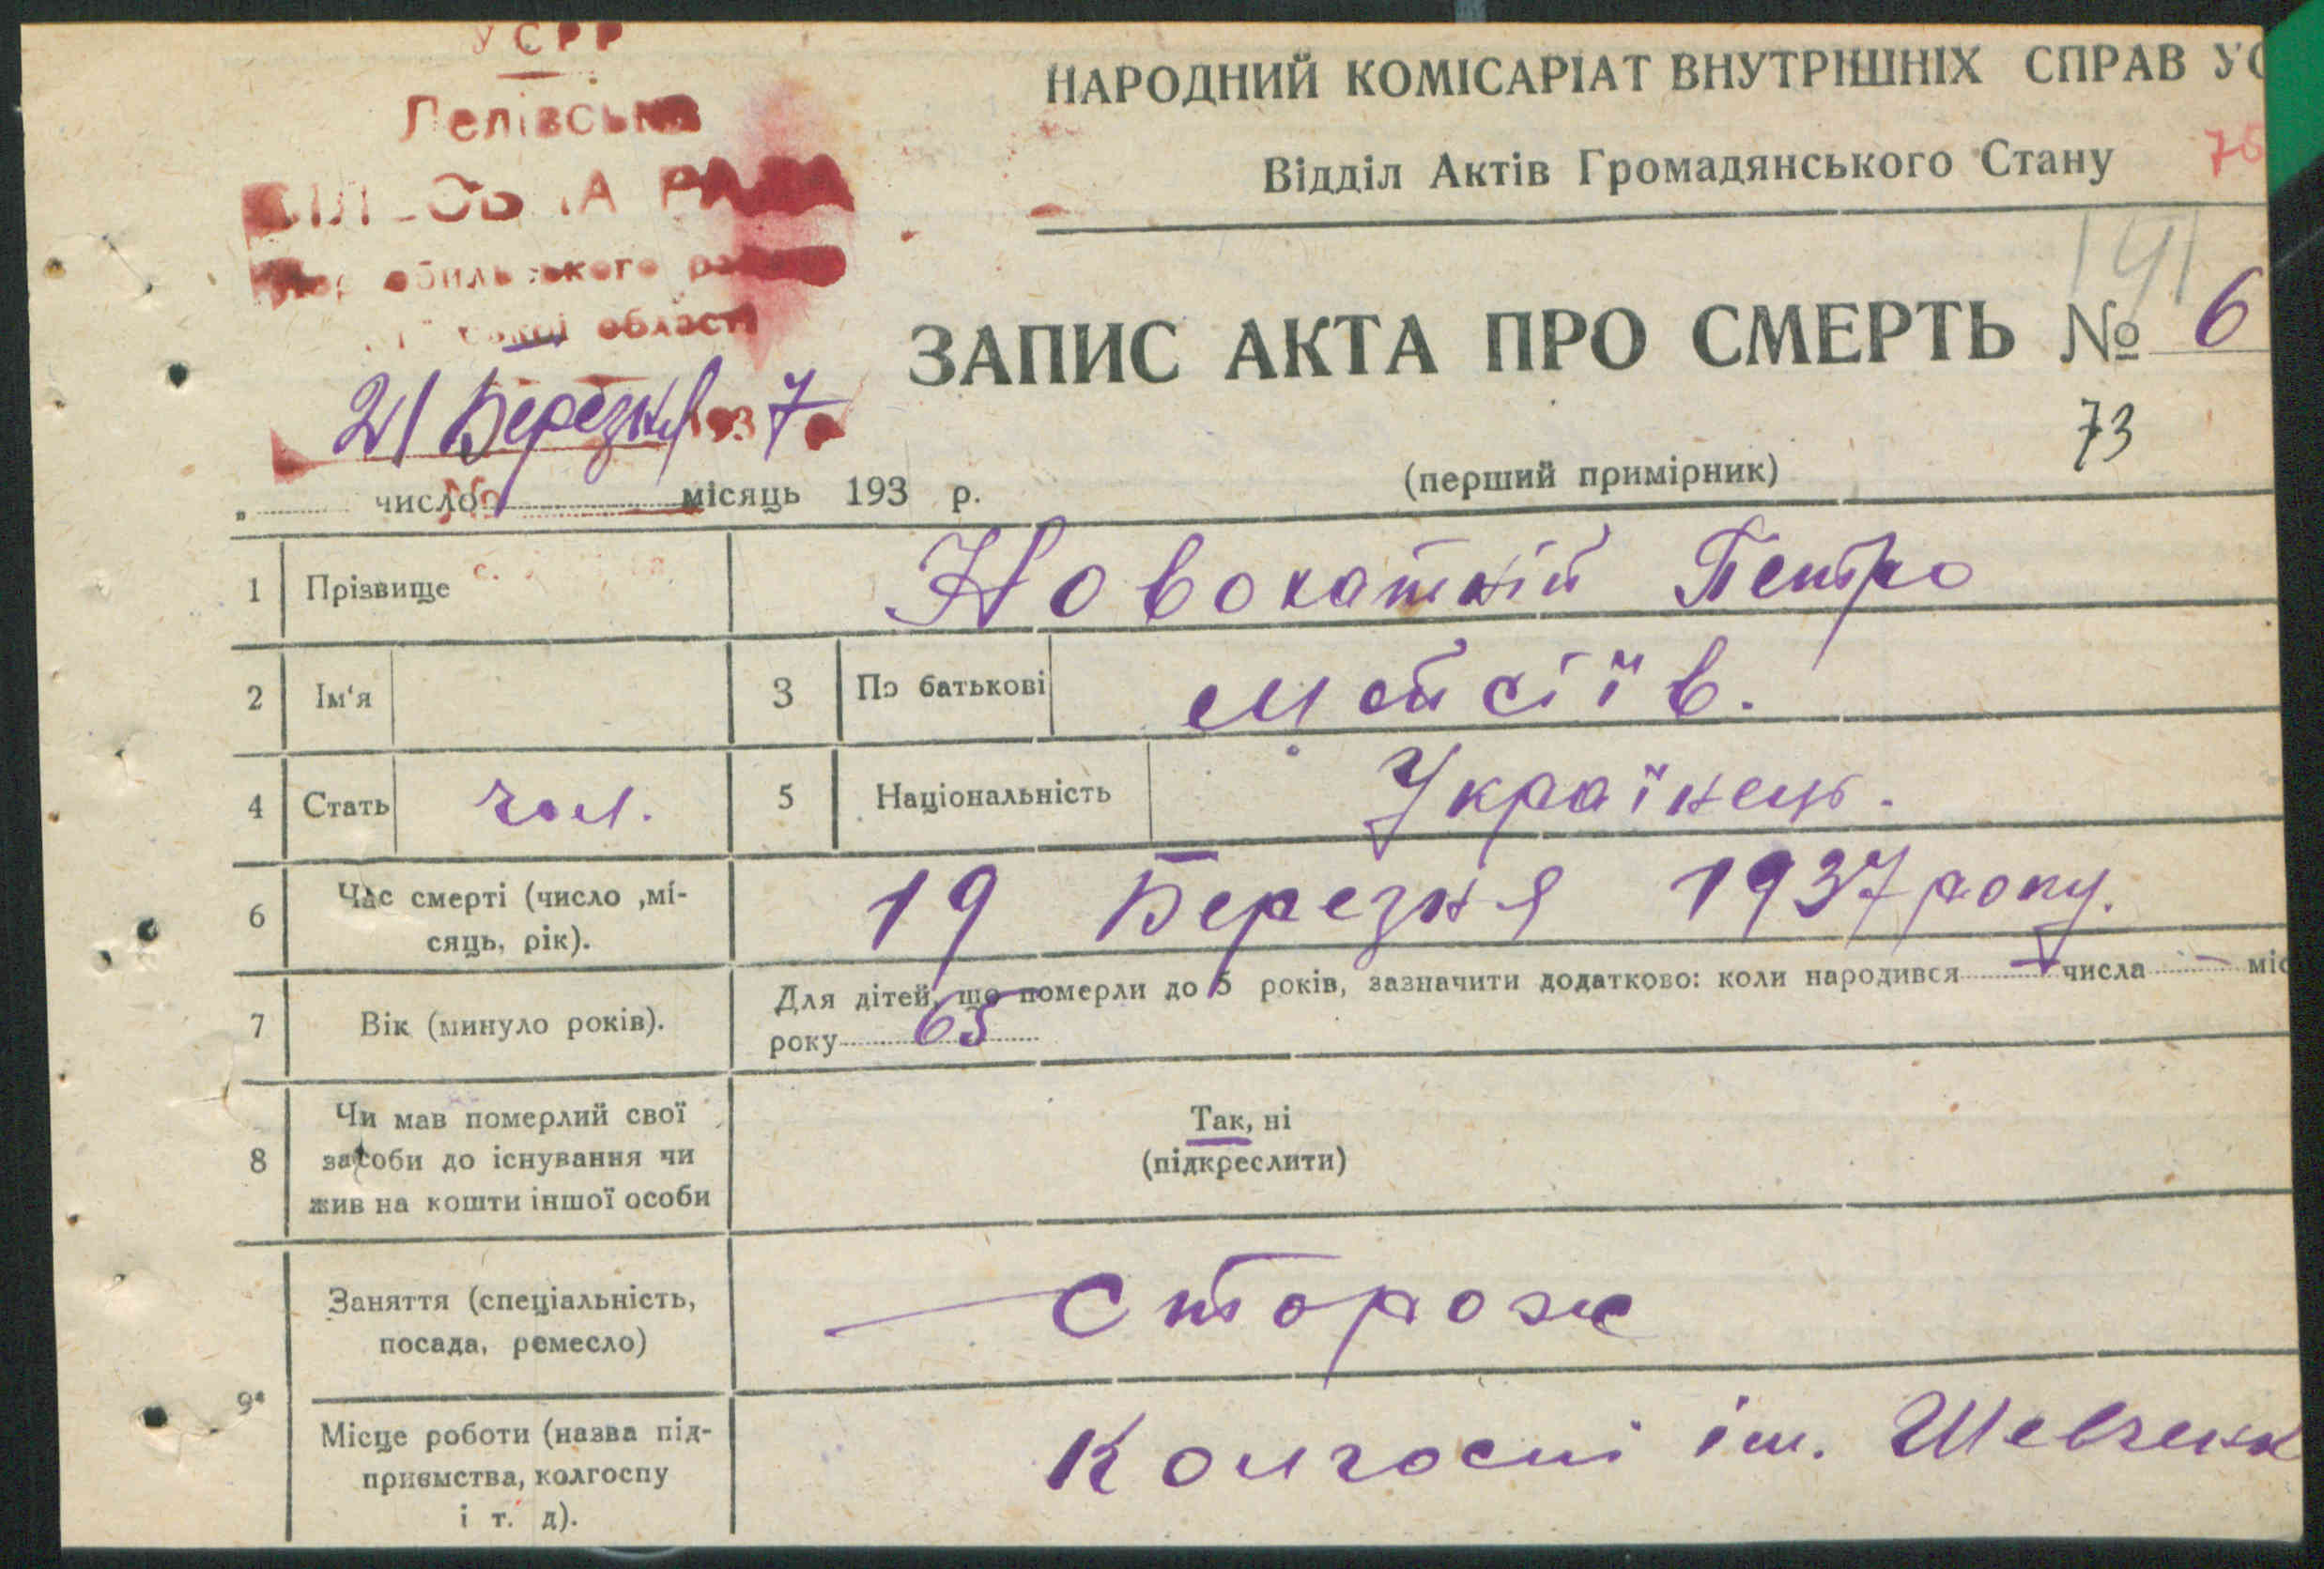 УСРР
Лелівська
РАДА
області
21 Березня 1937
число місяць 193 р.
НАРОДНИЙ КОМІСАРІАТ ВНУТРІШНІХ СПРАВ УС
Відділ Актів Громадянського Стану 75
141
ЗАПИС АКТА ПРО СМЕРТЬ № 6
73
(перший примірник)
1 Прізвище Новохатній Петро
2 Ім'я 3 По батькові Мойсіїв.
4 Стать чол. 5 Національність Українець.
6 Час смерті (число ,мі-
сяць, рік). 19 Березня 1937 року.
7 Вік (минуло років). Для дітей, що померли до 5 років, зазначити додатково: коли народився — числа — міс
року 65
8 Чи мав померлий свої
засоби до існування чи
жив на кошти іншої особи
Так, ні
(підкреслити)
9* Заняття (спеціальність,
посада, ремесло) — Сторож
Місце роботи (назва під-
приємства, колгоспу
і т. д).
Колгоспі ім. Шевченк